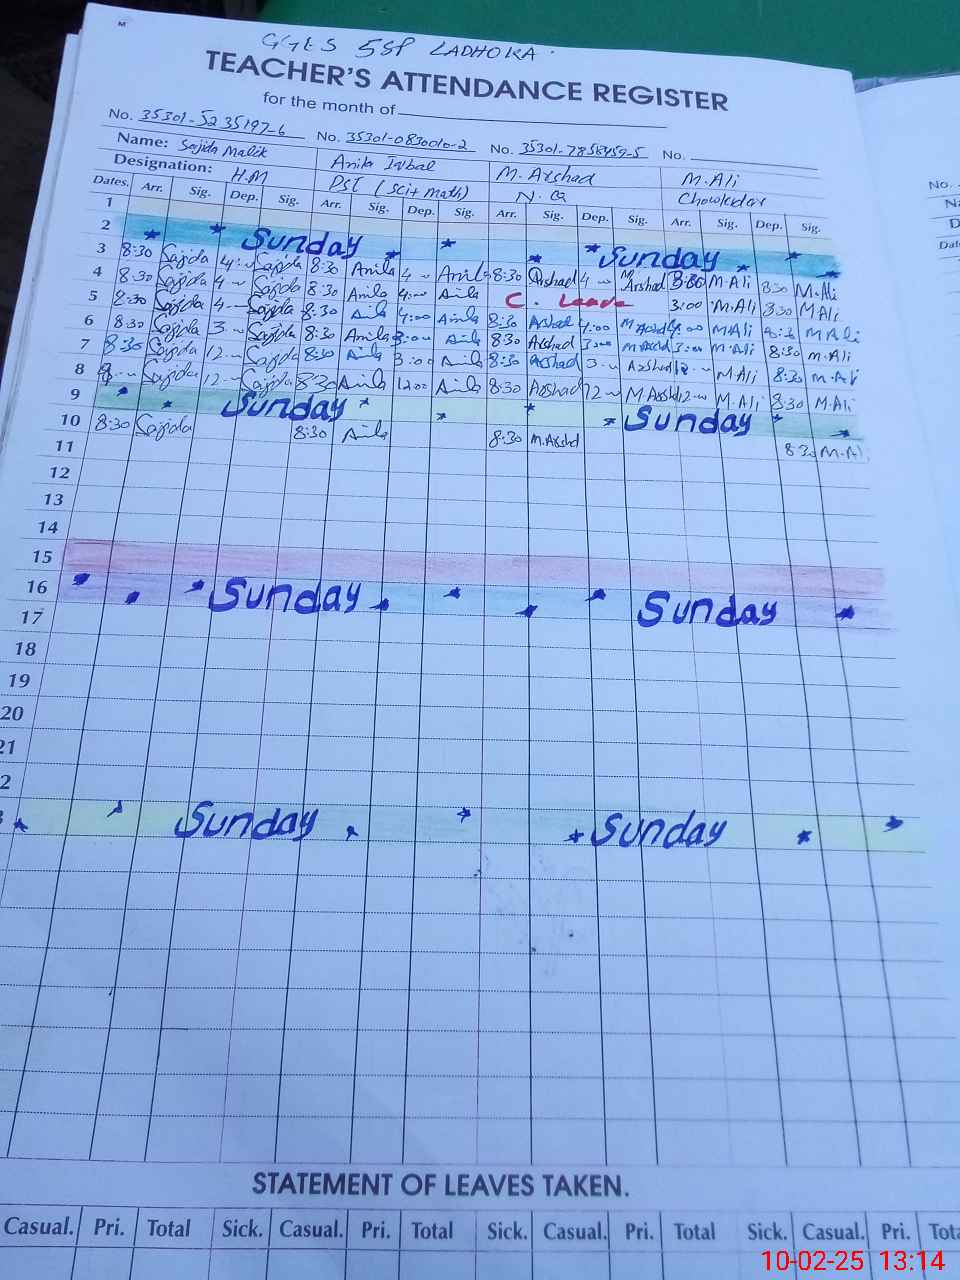 M
GGES 5SP LADHOKA.
TEACHER'S ATTENDANCE REGISTER
for the month of
No. 35301-5235197-6 No. 35301-0830010-2 No. 35301-7858459-5 No.
Name: Sajida Malik Anila Iqbal M. Arshad M.Ali
Designation: H.M PST (Sci+Math) N.Q Chowkidar
Dates. Arr. Sig. Dep. Sig. Arr. Sig. Dep. Sig. Arr. Sig. Dep. Sig. Arr. Sig. Dep. Sig.
1
2 Sunday Sunday
3 8:30 Sajida 4:- Sajida 8:30 Anila 4- Anila 8:30 Arshad 4- M.Arshad M.Ali 8:30 M.Ali
4 8:30 Sajida 4- Sajida 8:30 Anila 4:- Anila C. Leave 3:00 M.Ali 8:30 M.Ali
5 8:30 Sajida 4- Sajida 8:30 Anila 4:00 Anila 8:30 Arshad 4:00 M.Arshad M.Ali M.Ali
6 8:30 Sajida 3- Sajida 8:30 Anila 3:00 Anila 8:30 Arshad 3:00 M.Arshad 3:00 M.Ali 8:30 M.Ali
7 8:30 Sajida 12- Sajida 8:30 Anila 3:00 Anila 8:30 Arshad Arshad M.Ali 8:30 M.Ali
8 Sajida 12- Sajida 8:30 Anila Anila 8:30 Arshad 12- M.Arshad 12- M.Ali 8:30 M.Ali
9 Sunday Sunday
10 8:30 Sajida 8:30 Anila 8:30 M.Arshd 8:30 M.Ali
11
12
13
14
15
16 Sunday Sunday
17
18
19
20
21
2
3 Sunday Sunday
STATEMENT OF LEAVES TAKEN.
Casual. Pri. Total Sick. Casual. Pri. Total Sick. Casual. Pri. Total Sick. Casual. Pri. Tota
No.
Na
D
Dat
10-02-25 13:14